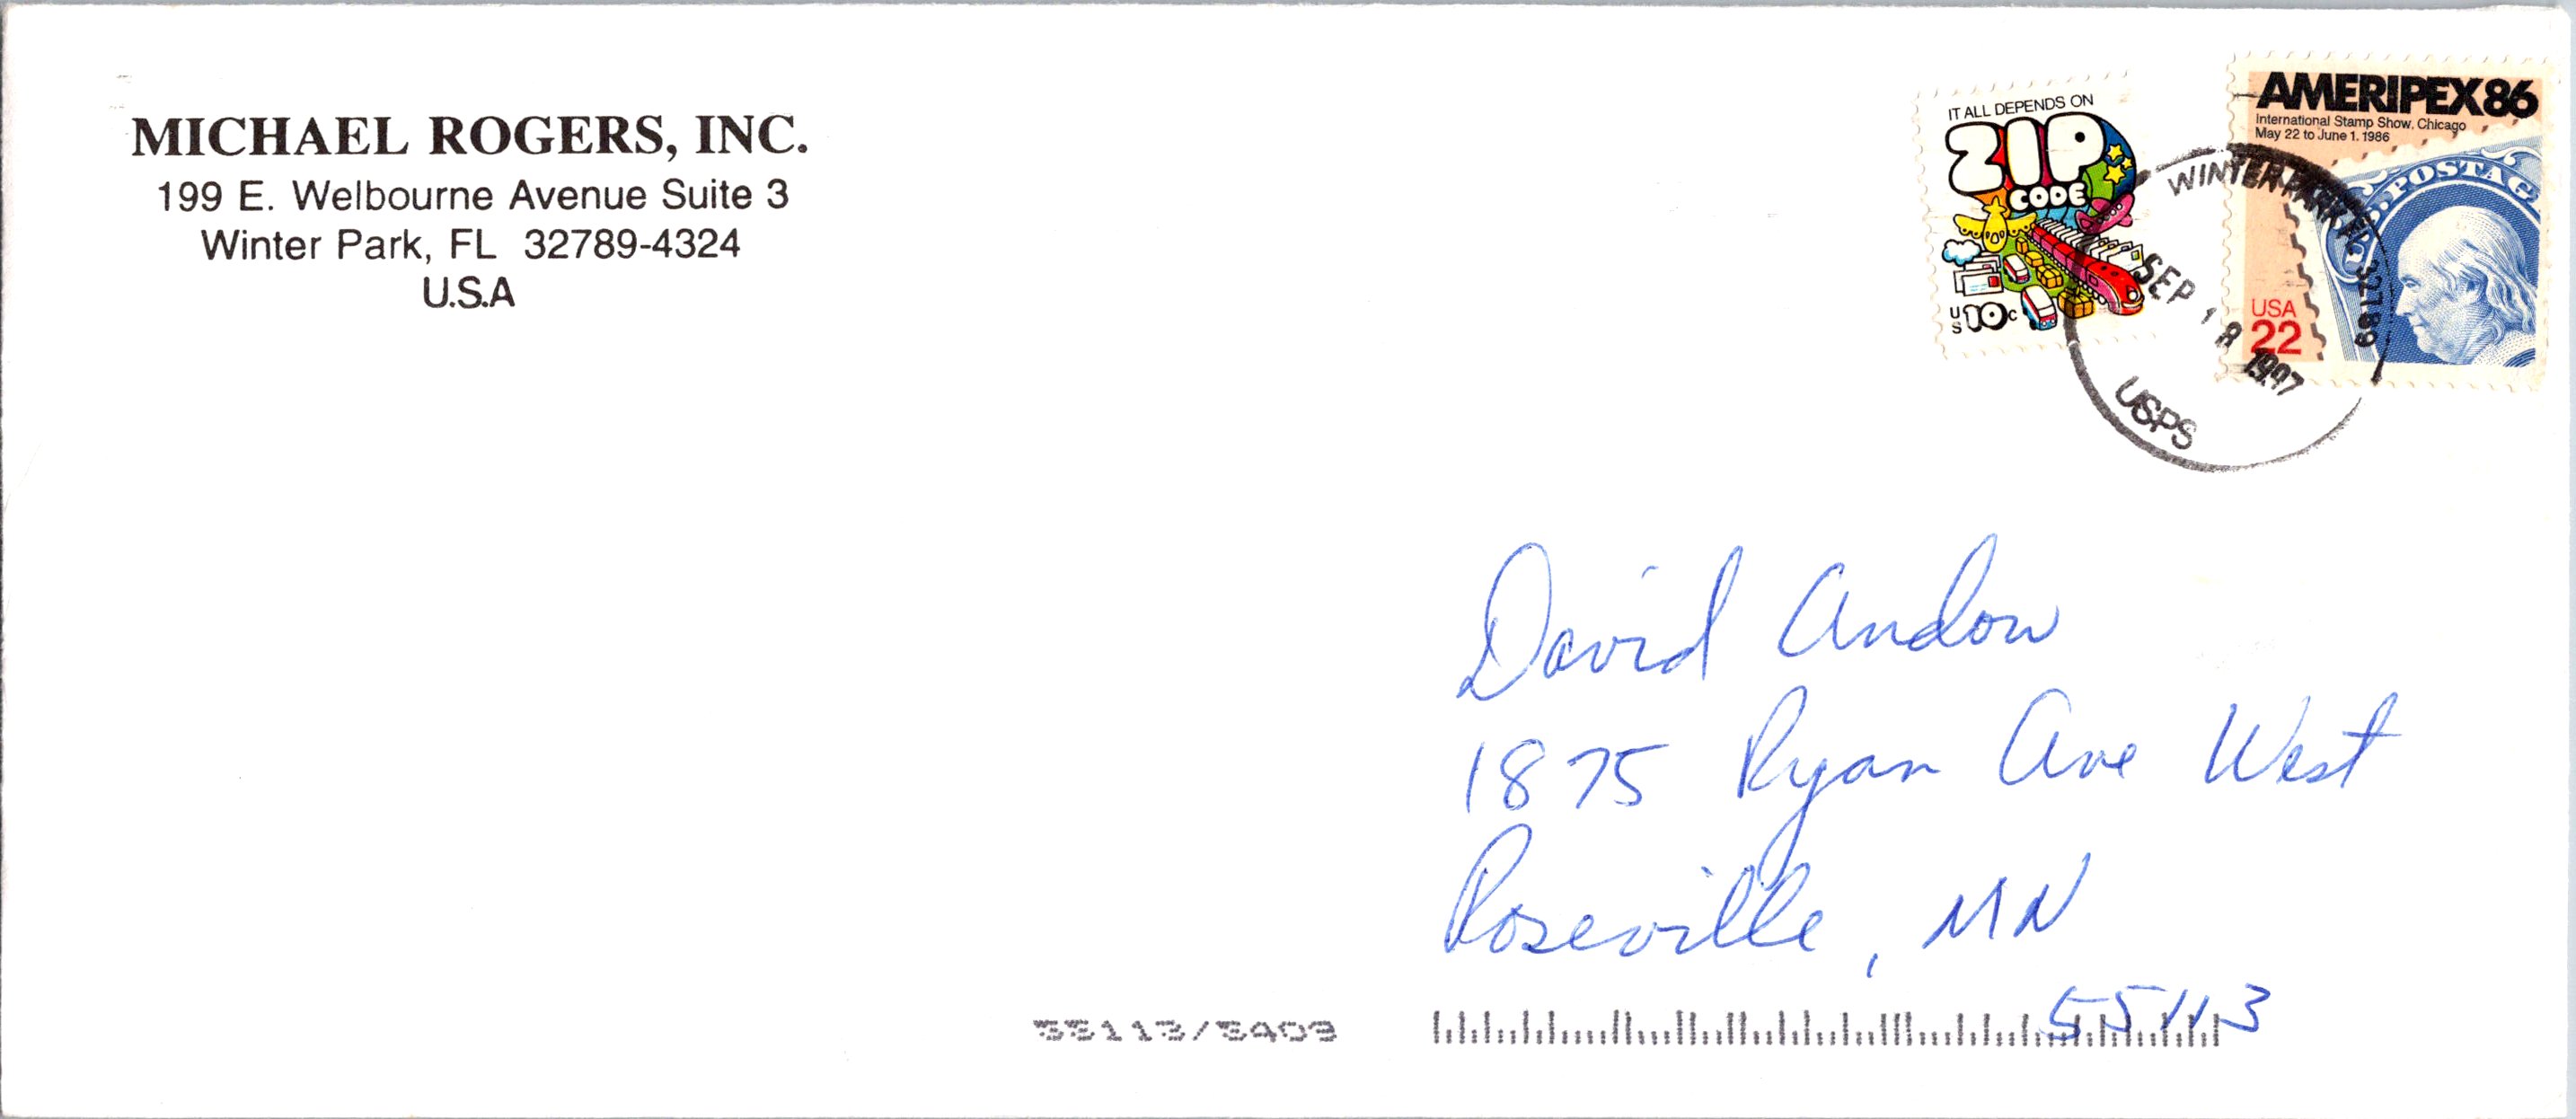 MICHAEL ROGERS, INC.
199 E. Welbourne Avenue Suite 3
Winter Park, FL 32789-4324
U.S.A
IT ALL DEPENDS ON
ZIP
CODE
US 10c
AMERIPEX86
International Stamp Show, Chicago
May 22 to June 1, 1986
U.S. POSTAG
USA
22
WINTER PARK, FL 32789
SEP 18 1997
USPS
David Andow
1875 Ryan Ave West
Roseville, MN
55113
55113/5409